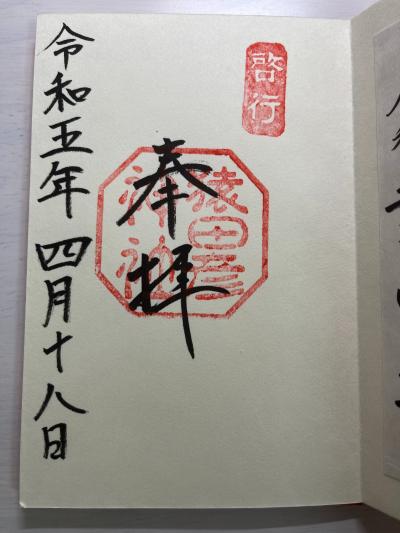 啓行
奉拝
猿田彦
神社
令和五年四月十八日